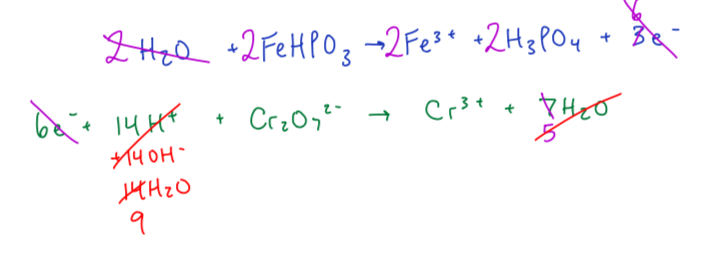 2 H₂O + 2FeHPO₃ → 2Fe³⁺ + 2H₃PO₄ + 3e⁻ 6
6e⁻ + 14H⁺ + Cr₂O₇²⁻ → Cr³⁺ + 7H₂O
+14OH⁻ 5
14H₂O
9